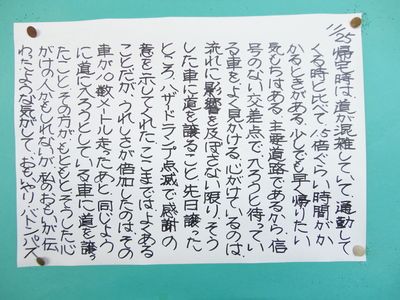 11/25
帰宅時は、道が混雑していて、通勤して
くる時と比べて、1.5倍ぐらい時間がか
かるときがある。少しでも早く帰りたい
気もちはある。主要道路であるから、信
号のない交差点で、入ろうと待ってい
る車をよく見かける。心がけているのは、
流れに影響を及ぼさない限り、そう
した車に道を譲ること。先日譲った
ところ、ハザードランプ点滅で感謝の
意を示してくれた。ここまではよくある
ことだが、うれしさが倍加したのは、その
車が、数メートル走ったあと、同じよう
に道に入ろうとしている車に道を譲っ
たこと。その方がもともとそうした心
がけの人かもしれないが、私のおもいが伝
わったような気がして。おもいやりバトンパス